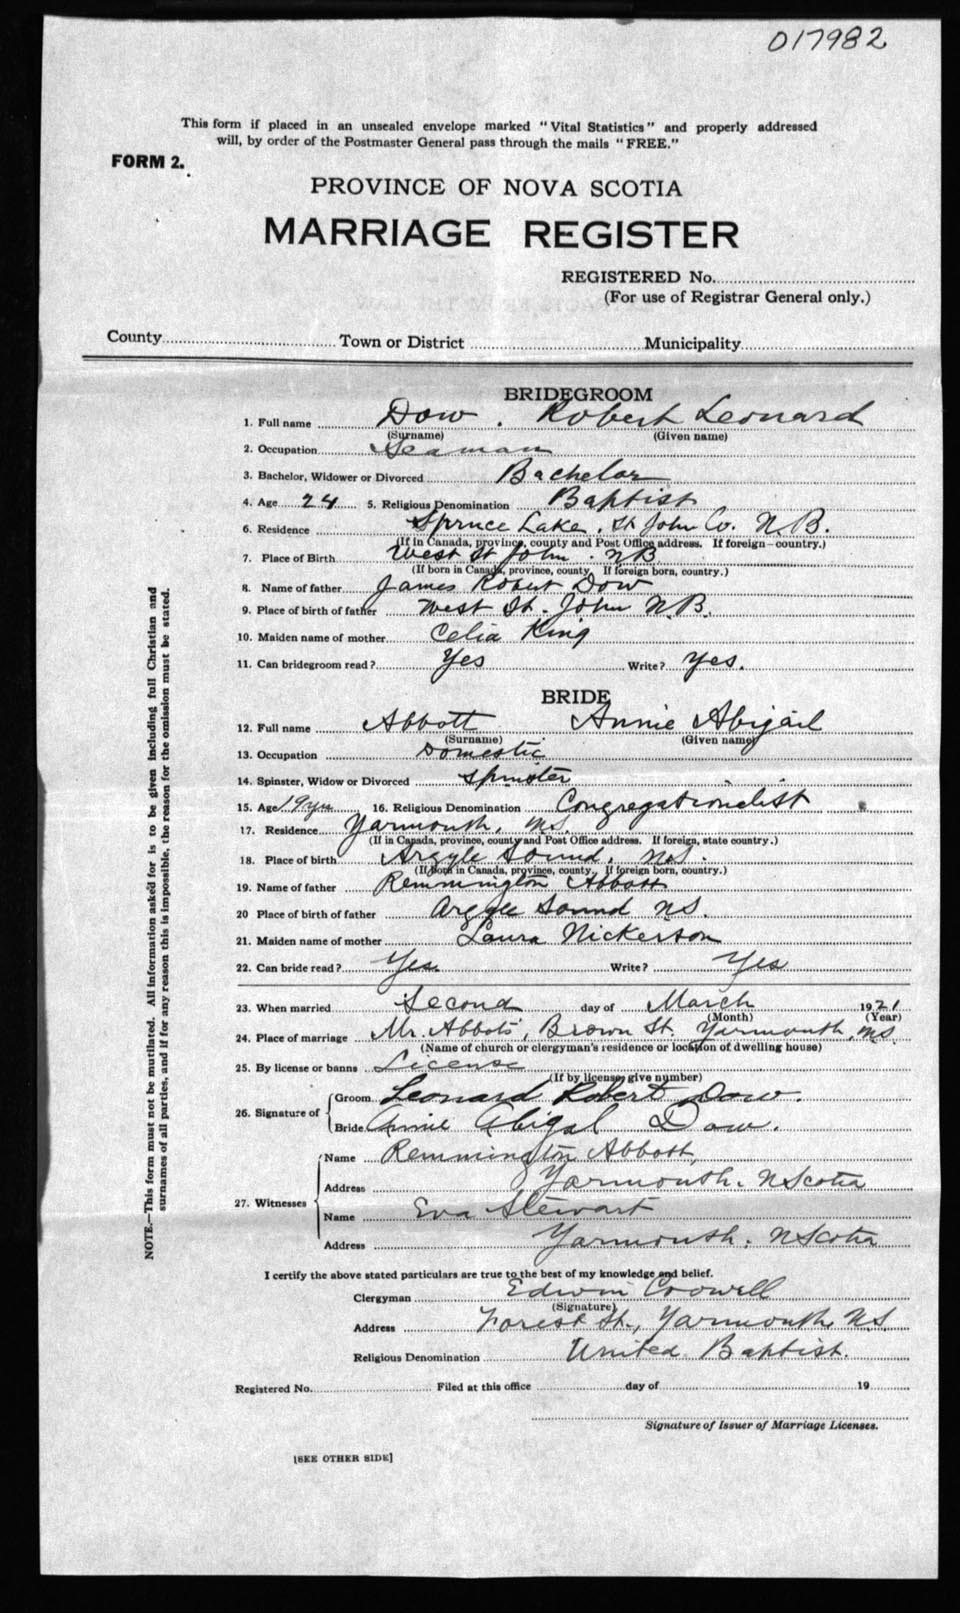 017982
This form if placed in an unsealed envelope marked "Vital Statistics" and properly addressed
will, by order of the Postmaster General pass through the mails "FREE."
FORM 2.
PROVINCE OF NOVA SCOTIA
MARRIAGE REGISTER
REGISTERED No.
(For use of Registrar General only.)
County Town or District Municipality
BRIDEGROOM
1. Full name Dow. Robert Leonard
(Surname) (Given name)
2. Occupation Seaman
3. Bachelor, Widower or Divorced Bachelor
4. Age 24 5. Religious Denomination Baptist
6. Residence Spruce Lake, St John Co. N.B.
(If in Canada, province, county and Post Office address. If foreign—country.)
7. Place of Birth West St John. NB
(If born in Canada, province, county. If foreign born, country.)
8. Name of father James Robert Dow
9. Place of birth of father West St. John N.B.
10. Maiden name of mother Celia King
11. Can bridegroom read? Yes Write? Yes.
BRIDE
12. Full name Abbott Annie Abigail
(Surname) (Given name)
13. Occupation Domestic
14. Spinster, Widow or Divorced Spinster
15. Age 19 yrs 16. Religious Denomination Congregationalist
17. Residence Yarmouth, NS.
(If in Canada, province, county and Post Office address. If foreign, state country.)
18. Place of birth Argyle Sound, N.S.
(If Born in Canada, province, county. If foreign born, country.)
19. Name of father Remmington Abbott
20 Place of birth of father Argyle Sound NS.
21. Maiden name of mother Laura Nickerson
22. Can bride read? Yes. Write? Yes
23. When married Second day of March 1921
(Month) (Year)
24. Place of marriage Mr. Abbots', Brown St. Yarmouth, NS.
(Name of church or clergyman's residence or location of dwelling house)
25. By license or banns License
(If by license, give number)
26. Signature of
Groom Leonard Robert Dow.
Bride Annie Abigal Dow.
27. Witnesses
Name Remmington Abbott,
Address Yarmouth. N Scotia
Name Eva Stewart
Address Yarmouth. N Scotia
I certify the above stated particulars are true to the best of my knowledge and belief.
Clergyman Edwin Crowell
(Signature)
Address Forest St., Yarmouth, N.S.
Religious Denomination United Baptist.
Registered No. Filed at this office day of 19
Signature of Issuer of Marriage Licenses.
[SEE OTHER SIDE]
NOTE.—This form must not be mutilated. All information asked for is to be given including full Christian and
surnames of all parties, and if for any reason this is impossible, the reason for the omission must be stated.